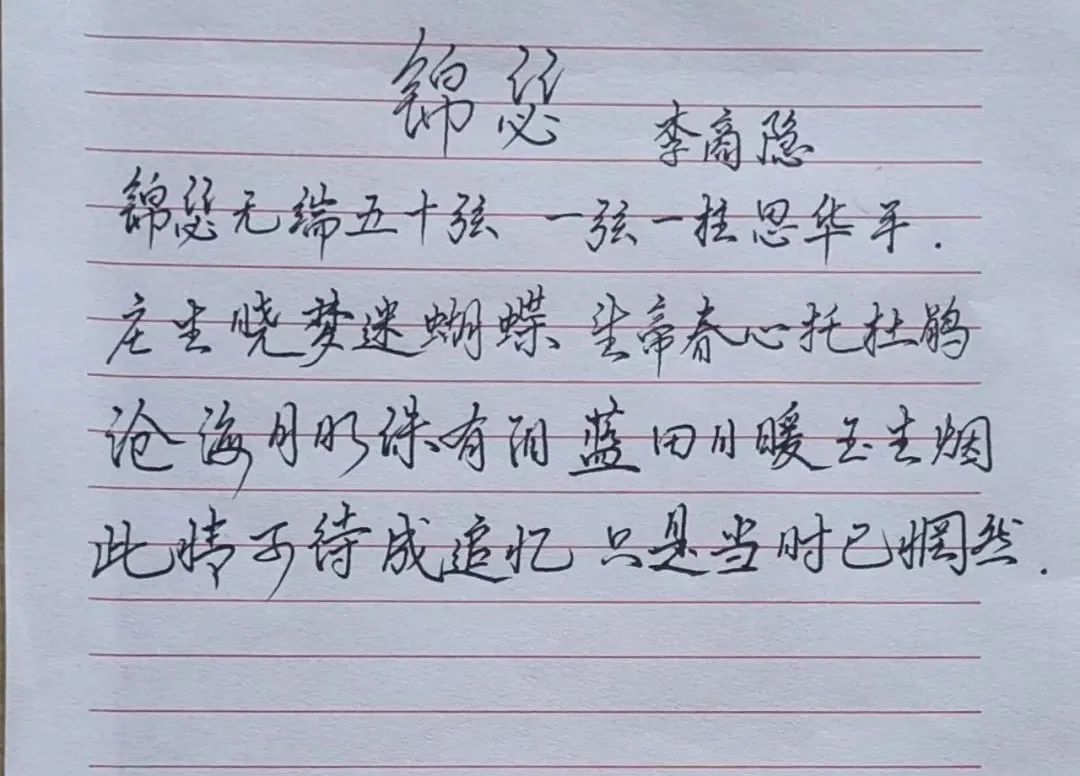 锦瑟
李商隐
锦瑟无端五十弦 一弦一柱思华年.
庄生晓梦迷蝴蝶 望帝春心托杜鹃
沧海月明珠有泪 蓝田日暖玉生烟
此情可待成追忆 只是当时已惘然.